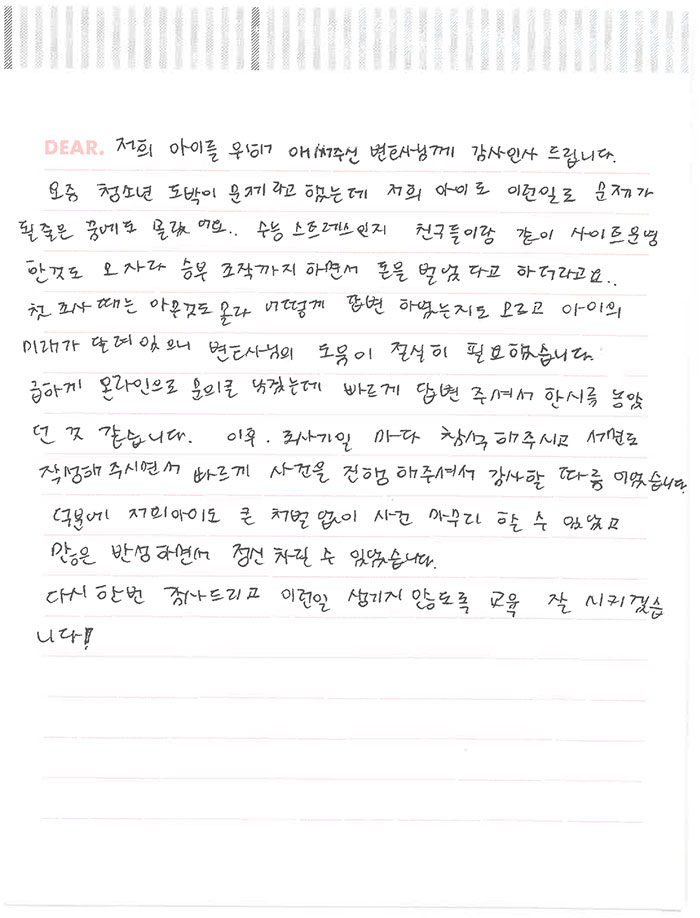 DEAR. 저희 아이를 위해 애써주신 변호사님께 감사인사 드립니다.
요즘 청소년 도박이 문제라고 했는데 저희 아이도 이런일로 문제가
될줄은 꿈에도 몰랐어요.. 수능 스트레스인지 친구들이랑 같이 사이트운영
한것도 모자라 승부 조작까지 하면서 돈을 벌었다고 하더라고요..
첫 조사 때는 아무것도 몰라 어떻게 답변 하였는지도 모르고 아이의
미래가 달려있으니 변호사님의 도움이 절실히 필요했습니다.
급하게 온라인으로 문의를 남겼는데 빠르게 답변 주셔서 한시름 놓았
던 것 같습니다. 이후. 조사기일 마다 참석해주시고 서면도
작성해주시면서 빠르게 사건을 진행해주셔서 감사할 따름이었습니다.
덕분에 저희아이도 큰 처벌 없이 사건 마무리 할 수 있었고
많은 반성하면서 정신차릴 수 있었습니다.
다시한번 감사드리고 이런일 생기지 않도록 교육 잘 시키겠습
니다!